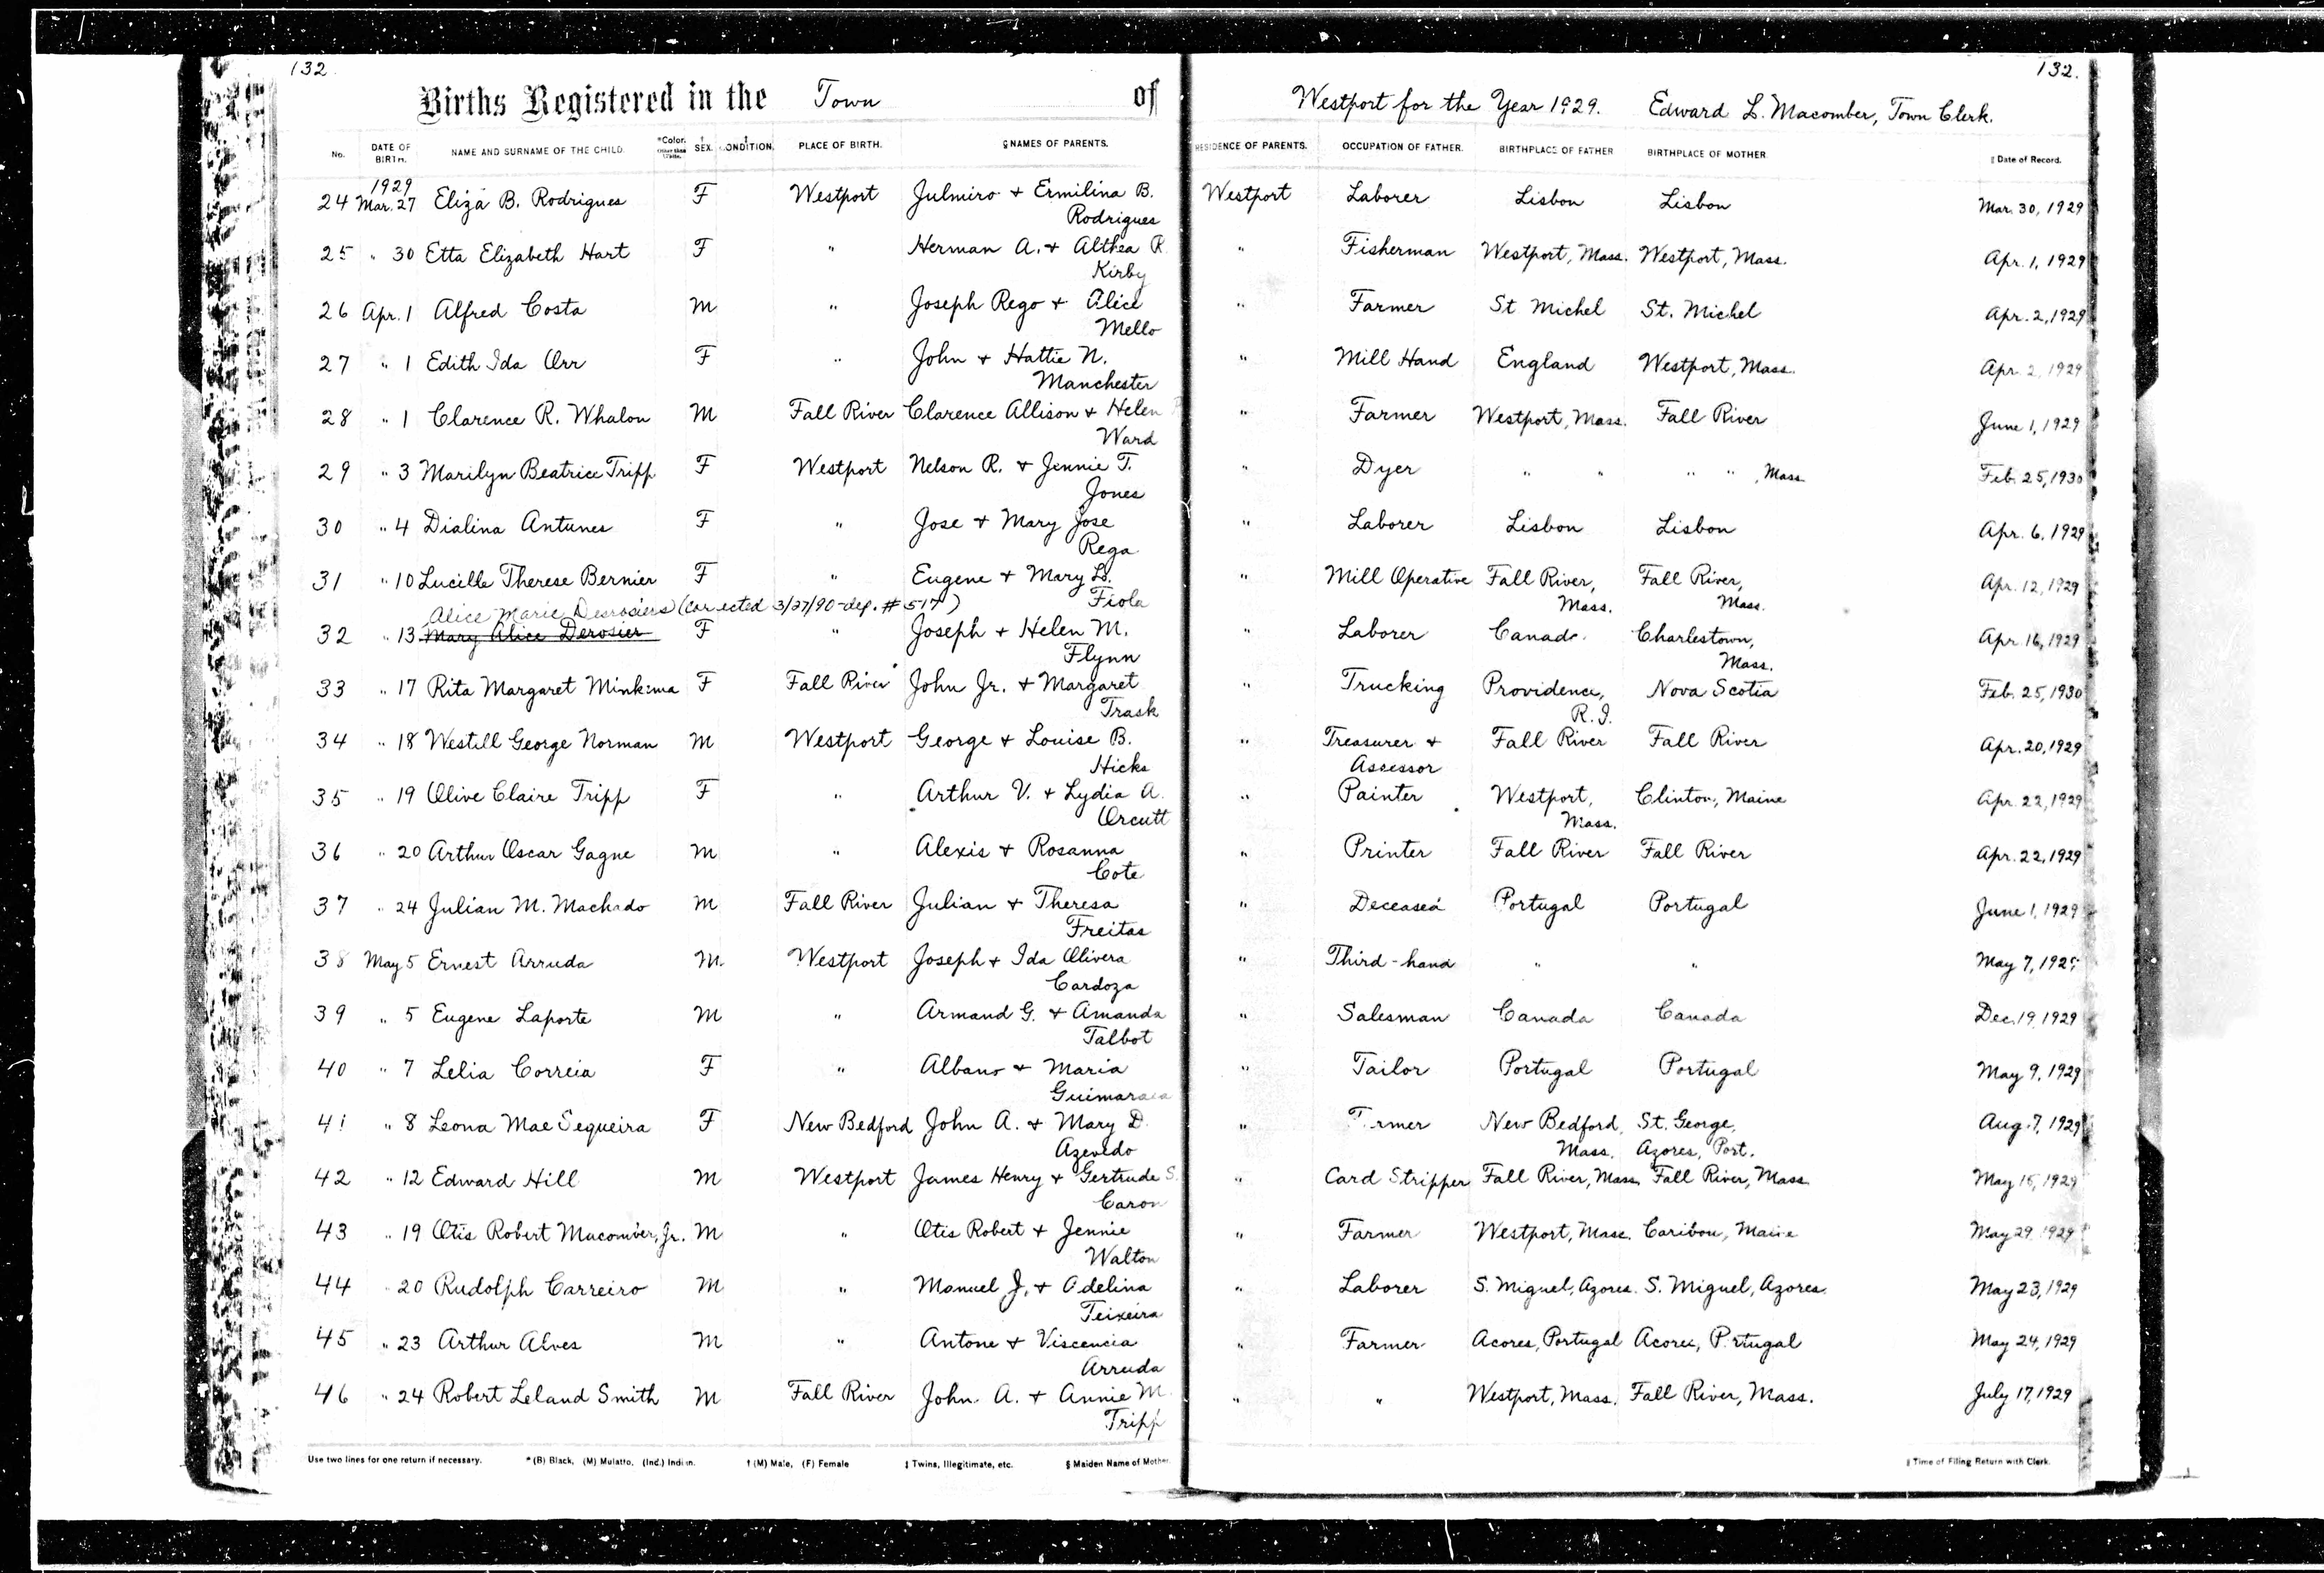 132.
132.
Births Registered in the Town of Westport for the Year 1929. Edward L. Macomber, Town Clerk.
No. DATE OF BIRTH. NAME AND SURNAME OF THE CHILD. *Color. Other than White. † SEX. ‡ CONDITION. PLACE OF BIRTH. § NAMES OF PARENTS. RESIDENCE OF PARENTS. OCCUPATION OF FATHER. BIRTHPLACE OF FATHER BIRTHPLACE OF MOTHER. ‖ Date of Record.
1929
24 Mar. 27 Eliza B. Rodrigues F Westport Julmiro + Ermilina B. Westport Laborer Lisbon Lisbon Mar. 30, 1929
Rodrigues
25 " 30 Etta Elizabeth Hart F " Herman A. + Althea R. " Fisherman Westport, Mass. Westport, Mass. Apr. 1, 1929
Kirby
26 Apr. 1 Alfred Costa M " Joseph Rego + Alice " Farmer St Michel St. Michel Apr. 2, 1929
Mello
27 " 1 Edith Ida Orr F " John + Hattie N. " Mill Hand England Westport, Mass. Apr. 2, 1929
Manchester
28 " 1 Clarence R. Whalon M Fall River Clarence Allison + Helen " Farmer Westport, Mass. Fall River June 1, 1929
Ward
29 " 3 Marilyn Beatrice Tripp F Westport Nelson R. + Jennie T. " Dyer " " " " , Mass. Feb. 25, 1930
Jones
30 " 4 Dialina Antunes F " Jose + Mary Jose " Laborer Lisbon Lisbon Apr. 6, 1929
Rega
31 " 10 Lucille Therese Bernier F " Eugene + Mary L. " Mill Operative Fall River, Fall River, Apr. 12, 1929
Fiola Mass. Mass.
Alice Marie Desrosiers (corrected 3/27/90-dep. # 517)
32 " 13 Mary Alice Derosier F " Joseph + Helen M. " Laborer Canada. Charlestown, Apr. 16, 1929
Flynn Mass.
33 " 17 Rita Margaret Minkima F Fall River John Jr. + Margaret " Trucking Providence, Nova Scotia Feb. 25, 1930
Trask R.I.
34 " 18 Westell George Norman M Westport George + Louise B. " Treasurer + Fall River Fall River Apr. 20, 1929
Hicks Assessor
35 " 19 Olive Claire Tripp F " Arthur V. + Lydia A. " Painter Westport, Clinton, Maine Apr. 22, 1929
Orcutt Mass.
36 " 20 Arthur Oscar Gagne M " Alexis + Rosanna " Printer Fall River Fall River Apr. 22, 1929
Cote
37 " 24 Julian M. Machado M Fall River Julian + Theresa " Deceased Portugal Portugal June 1, 1929
Freitas
38 May 5 Ernest Arruda M. Westport Joseph + Ida Olivera " Third-hand " " May 7, 1929
Cardoza
39 " 5 Eugene Laporte M " Armand G. + Amanda " Salesman Canada Canada Dec. 19, 1929
Talbot
40 " 7 Lelia Correia F " Albano + Maria " Tailor Portugal Portugal May 9, 1929
Guimaraes
41 " 8 Leona Mae Sequeira F New Bedford John A. + Mary D. " Farmer New Bedford, St. George, Aug. 7, 1929
Azevedo Mass. Azores, Port.
42 " 12 Edward Hill M Westport James Henry + Gertrude S. " Card Stripper Fall River, Mass. Fall River, Mass. May 15, 1929
Caron
43 " 19 Otis Robert Macomber, Jr. M " Otis Robert + Jennie " Farmer Westport, Mass. Caribou, Maine May 29, 1929
Walton
44 " 20 Rudolph Carreiro M " Manuel J. + Adelina " Laborer S. Miguel, Azores. S. Miguel, Azores. May 23, 1929
Teixeira
45 " 23 Arthur Alves M " Antone + Viscencia " Farmer Acores, Portugal Acores, Portugal May 24, 1929
Arruda
46 " 24 Robert Leland Smith M Fall River John. A. + Annie M. " " Westport, Mass. Fall River, Mass. July 17, 1929
Tripp
Use two lines for one return if necessary. *(B) Black, (M) Mulatto, (Ind.) Indian. † (M) Male, (F) Female ‡ Twins, Illegitimate, etc. § Maiden Name of Mother. ‖ Time of Filing Return with Clerk.